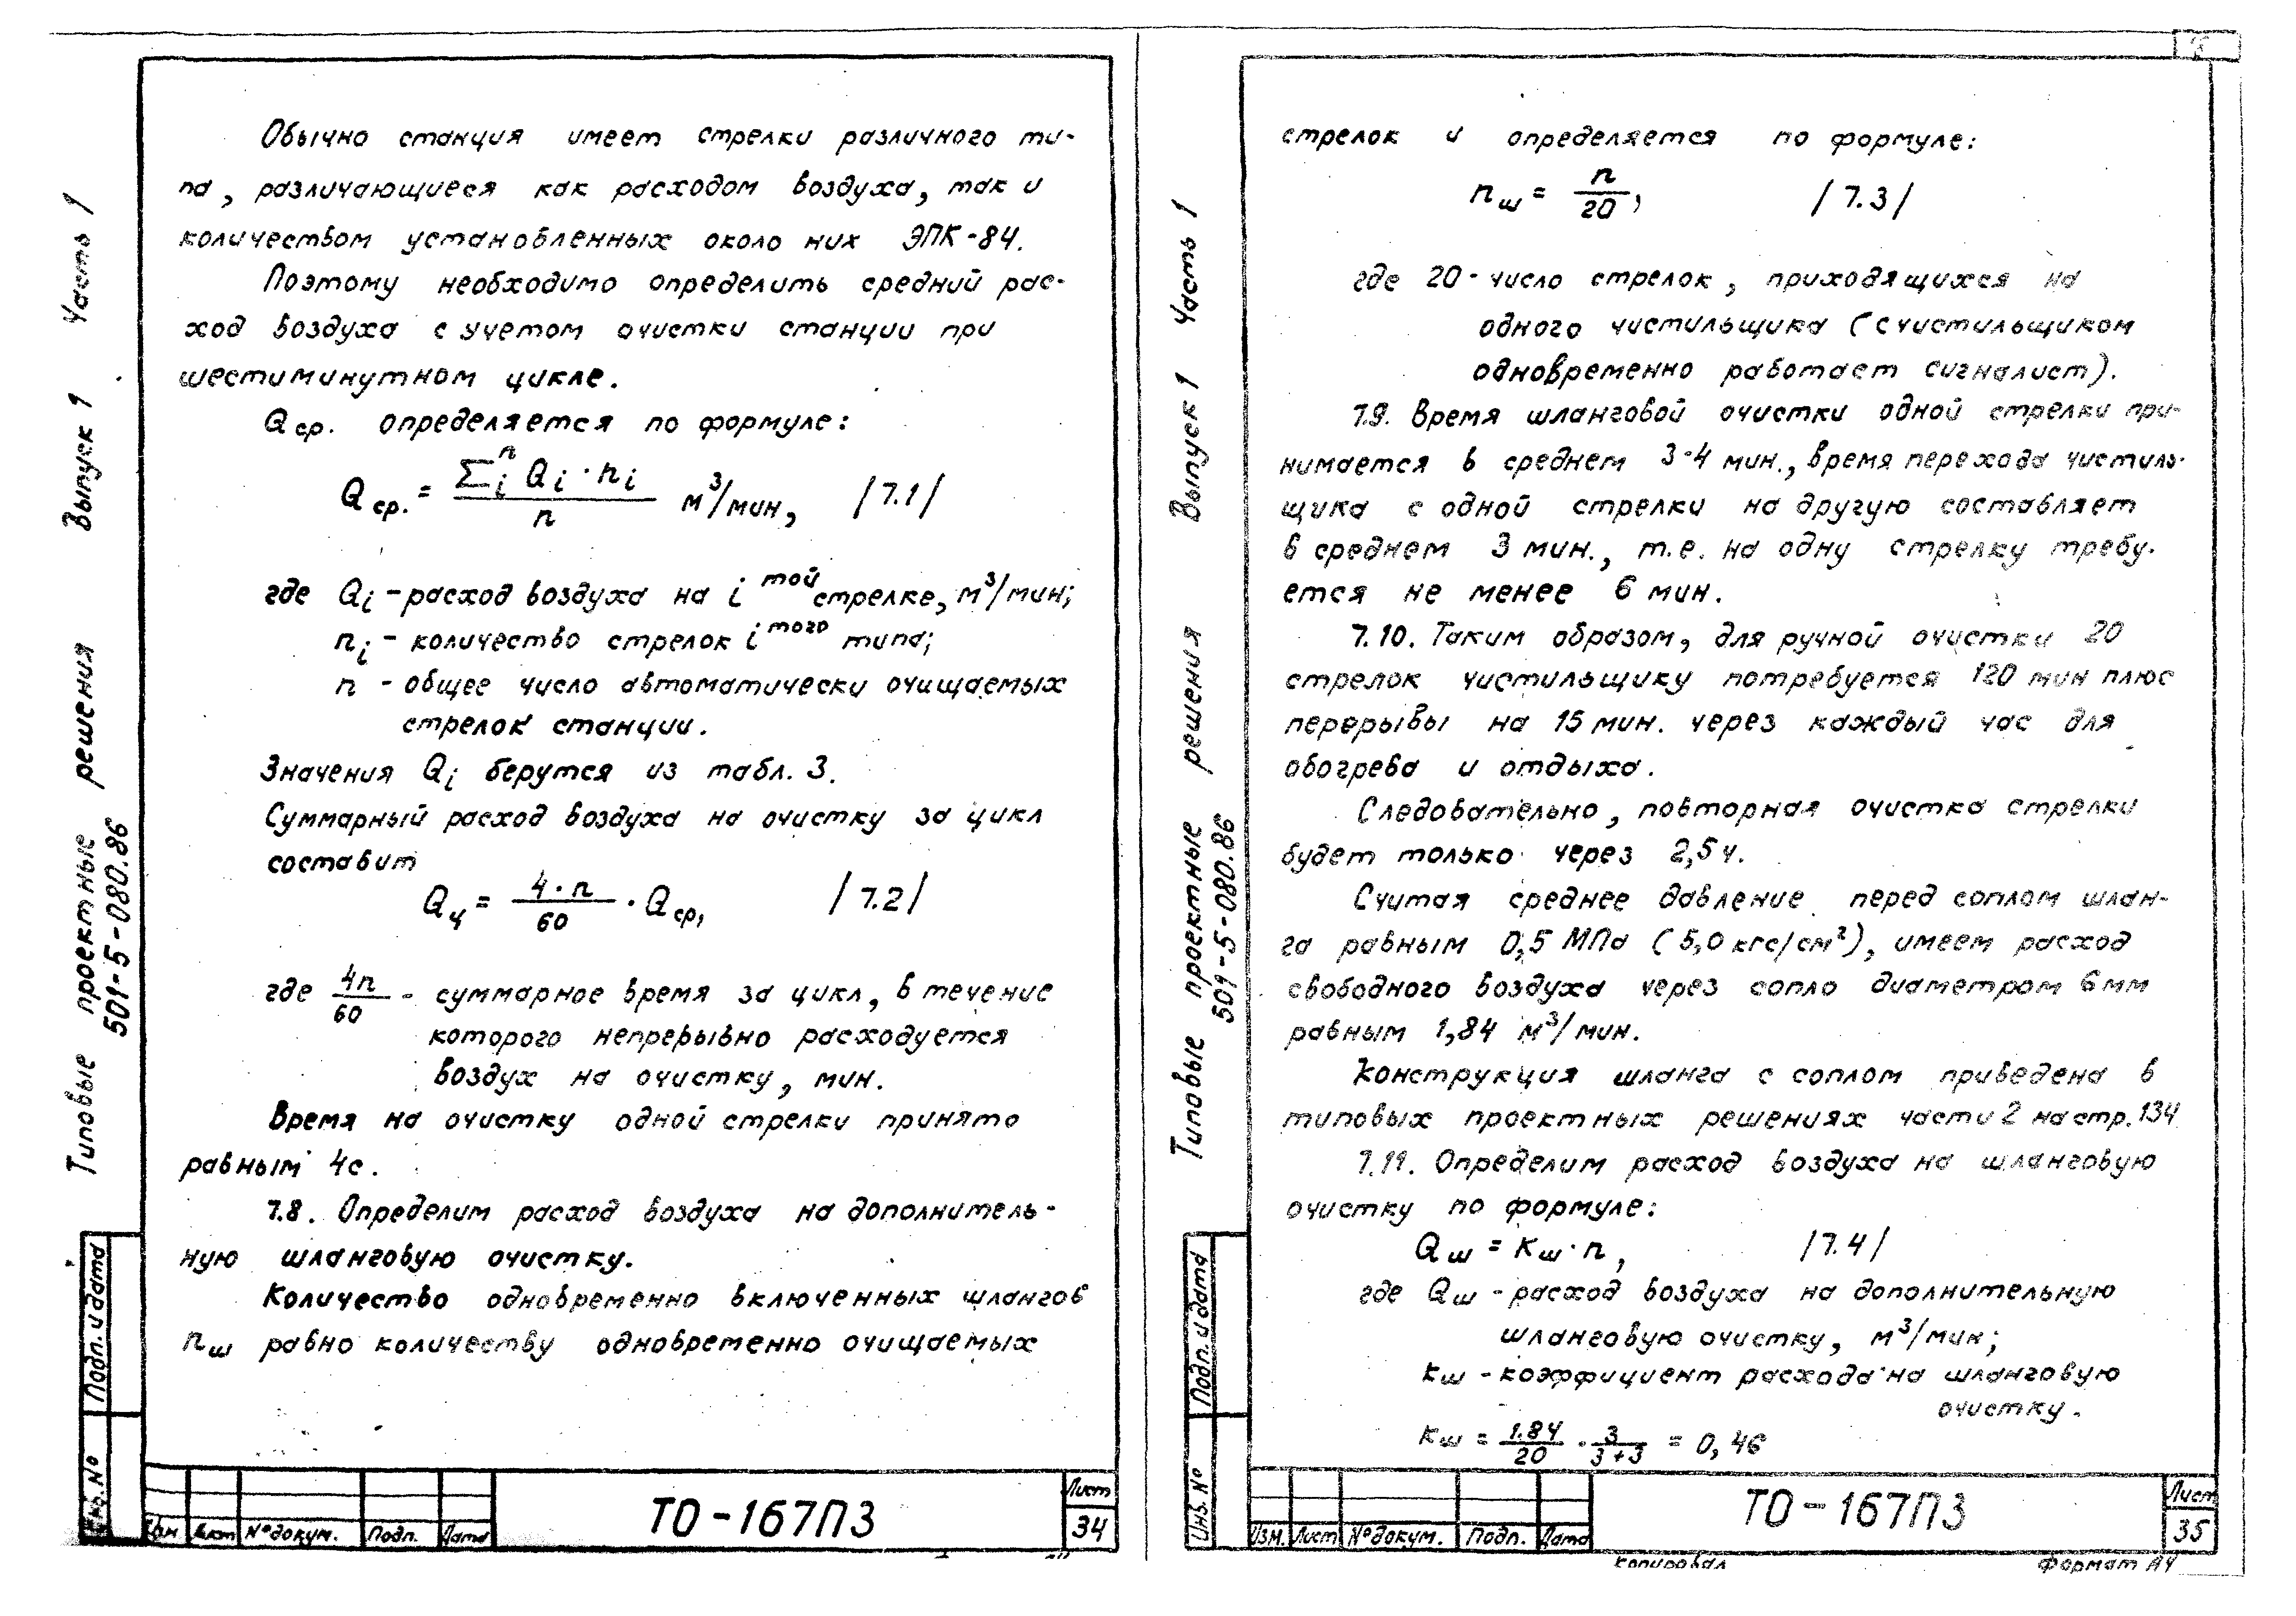 Обычно станция имеет стрелки различного ти-
па, различающиеся как расходом воздуха, так и
количеством установленных около них ЭПК-84.
Поэтому необходимо определить средний рас-
ход воздуха с учетом очистки станции при
шестиминутном цикле.
Qср. определяется по формуле:
Qср. = Σᵢⁿ Qi · ni / n м³/мин, /7.1/
где Qi - расход воздуха на i той стрелке, м³/мин;
ni - количество стрелок i того типа;
n - общее число автоматически очищаемых
стрелок станции.
Значения Qi берутся из табл. 3.
Суммарный расход воздуха на очистку за цикл
составит
Qц = 4·n / 60 · Qср, /7.2/
где 4n/60 - суммарное время за цикл, в течение
которого непрерывно расходуется
воздух на очистку, мин.
Время на очистку одной стрелки принято
равным 4с.
7.8. Определим расход воздуха на дополнитель-
ную шланговую очистку.
Количество одновременно включенных шлангов
nш равно количеству одновременно очищаемых
Типовые проектные решения Выпуск 1 Часть 1
501-5-080.86
Подп. и дата
Инв. №
Изм Лист № докум. Подп. Дата
ТО-167ПЗ
Лист
34
стрелок и определяется по формуле:
nш = n/20, /7.3/
где 20 - число стрелок, приходящихся на
одного чистильщика (с чистильщиком
одновременно работает сигналист).
7.9. Время шланговой очистки одной стрелки при-
нимается в среднем 3-4 мин., время перехода чистиль-
щика с одной стрелки на другую составляет
в среднем 3 мин., т.е. на одну стрелку требу-
ется не менее 6 мин.
7.10. Таким образом, для ручной очистки 20
стрелок чистильщику потребуется 120 мин плюс
перерывы на 15 мин. через каждый час для
обогрева и отдыха.
Следовательно, повторная очистка стрелки
будет только через 2,5ч.
Считая среднее давление перед соплом шлан-
га равным 0,5 МПа (5,0 кгс/см²), имеем расход
свободного воздуха через сопло диаметром 6мм
равным 1,84 м³/мин.
Конструкция шланга с соплом приведена в
типовых проектных решениях части 2 на стр. 134
7.11. Определим расход воздуха на шланговую
очистку по формуле:
Qш = Kш · n, /7.4/
где Qш - расход воздуха на дополнительную
шланговую очистку, м³/мин;
Kш - коэффициент расхода на шланговую
очистку.
Kш = 1.84/20 · 3/3+3 = 0,46
Типовые проектные решения Выпуск 1 Часть 1
501-5-080.86
Подп. и дата
Инв. №
Изм. Лист № докум. Подп. Дата
ТО-167ПЗ
Лист
35
Копировал
Формат А4